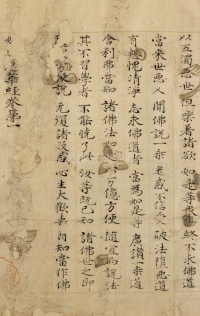 以五濁惡世 但樂著諸欲 如是等眾生 終不求佛道
當來世惡人 聞佛說一乘 迷惑不信受 破法墮惡道
有慙愧清淨 志求佛道者 當為如是等 廣讚一乘道
舍利弗當知 諸佛法如 億方便 隨宜而說法
其不習學者 不能曉了此 汝等既已知 諸佛世之師
无復諸疑惑 心生大歡喜 自知當作佛
妙 華經卷第一